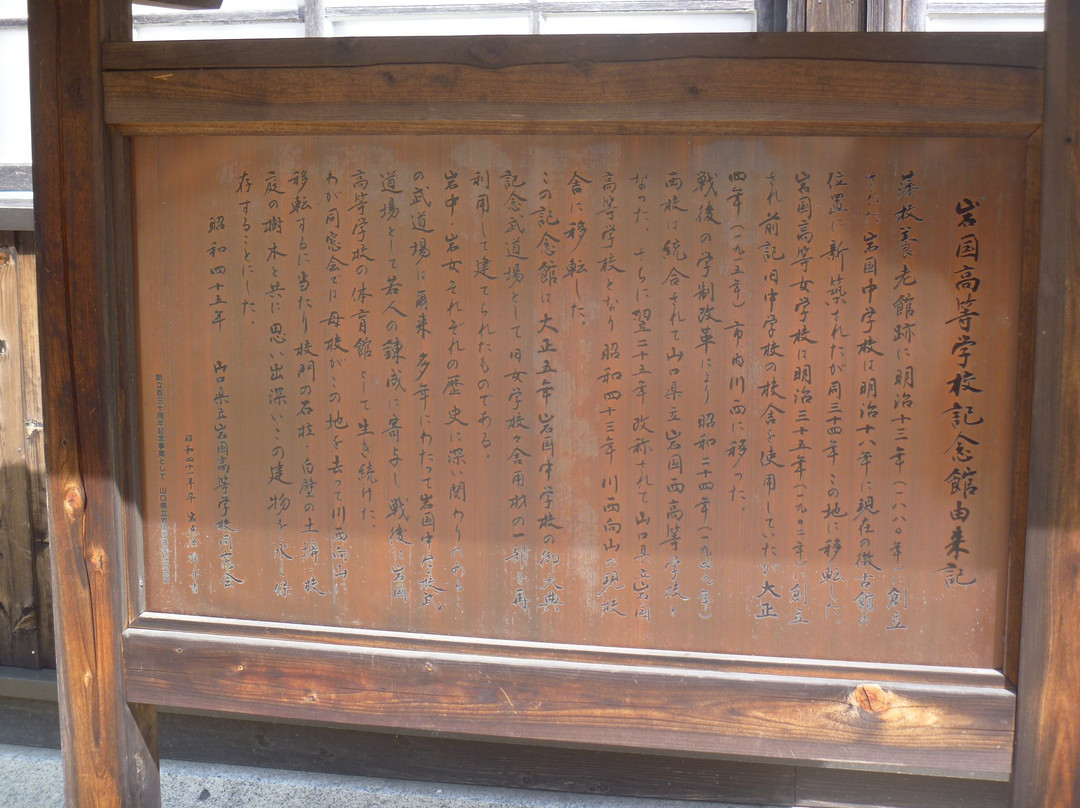 岩国高等学校記念館由来記
藩校養老館跡に明治十三年(一八八〇年)に創立
された岩国中学校は明治十八年に現在の徴古館の
位置に新築されたが同三十四年この地に移転した。
岩国高等女学校は明治三十五年(一九〇二年)に創立
され前記旧中学校の校舎を使用していたが大正
四年(一九一五年)市内川西に移った。
戦後の学制改革により昭和二十四年(一九四九年)
両校は統合されて山口県立岩国西高等学校と
なった。さらに翌二十五年改称されて山口県立岩国
高等学校となり昭和四十三年川西向山の現校
舎に移転した。
この記念館は大正五年岩国中学校の御大典
記念武道場として旧女学校々舎用材の一部を再
利用して建てられたものである。
岩中・岩女それぞれの歴史に深い関わりのあるこ
の武道場は爾来多年にわたって岩国中学校武
道場として若人の錬成に寄与し戦後は岩国
高等学校の体育館として生き続けた。
わが同窓会では母校がこの地を去って川西向山に
移転するに当たり校門の石柱・白壁の土塀・校
庭の樹木と共に思い出深いこの建物を永く保
存することにした。
昭和四十五年 山口県立岩国高等学校同窓会
昭和四十一年卒
創立百三十周年記念事業として 山口県立岩国高等学校同窓会